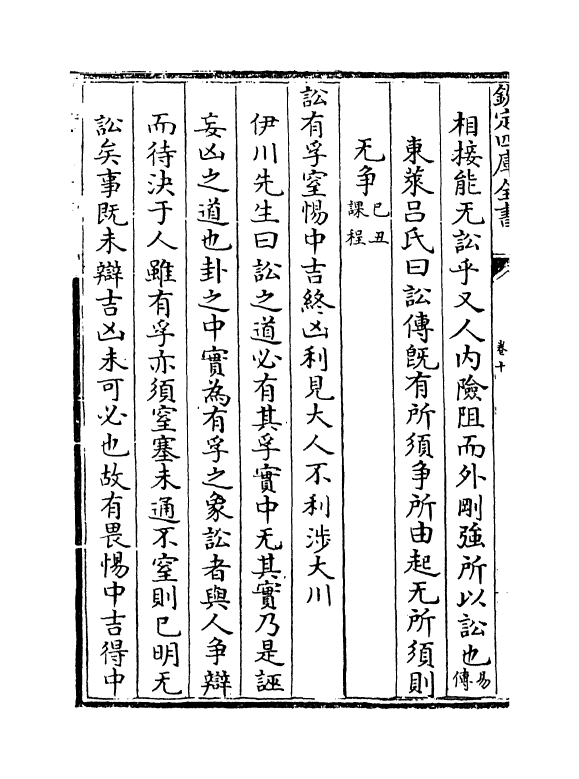 欽定四庫全書
卷十
相接能无訟乎又人内險阻而外剛強所以訟也易傳
東萊吕氏曰訟傳既有所須争所由起无所須則
无争己丑課程
訟有孚窒惕中吉終凶利見大人不利涉大川
伊川先生曰訟之道必有其孚實中无其實乃是誣
妄凶之道也卦之中實為有孚之象訟者與人争辯
而待決于人雖有孚亦須窒塞未通不窒則已明无
訟矣事既未辯吉凶未可必也故有畏惕中吉得中